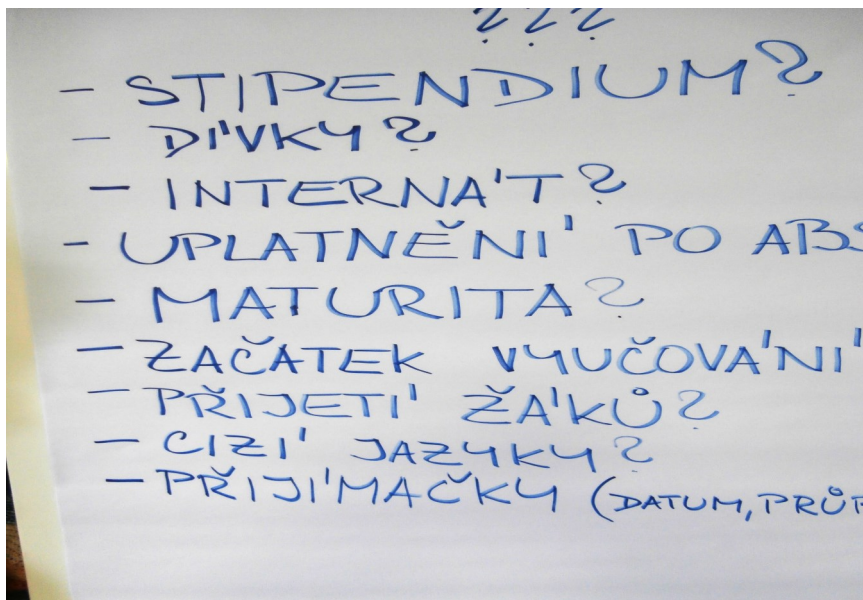 ???
- STIPENDIUM?
- DÍVKY?
- INTERNÁT?
- UPLATNĚNÍ PO ABS
- MATURITA?
- ZAČÁTEK VYUČOVÁNÍ
- PŘIJETÍ ŽÁKŮ?
- CIZÍ JAZYKY?
- PŘIJÍMAČKY (DATUM, PRŮP